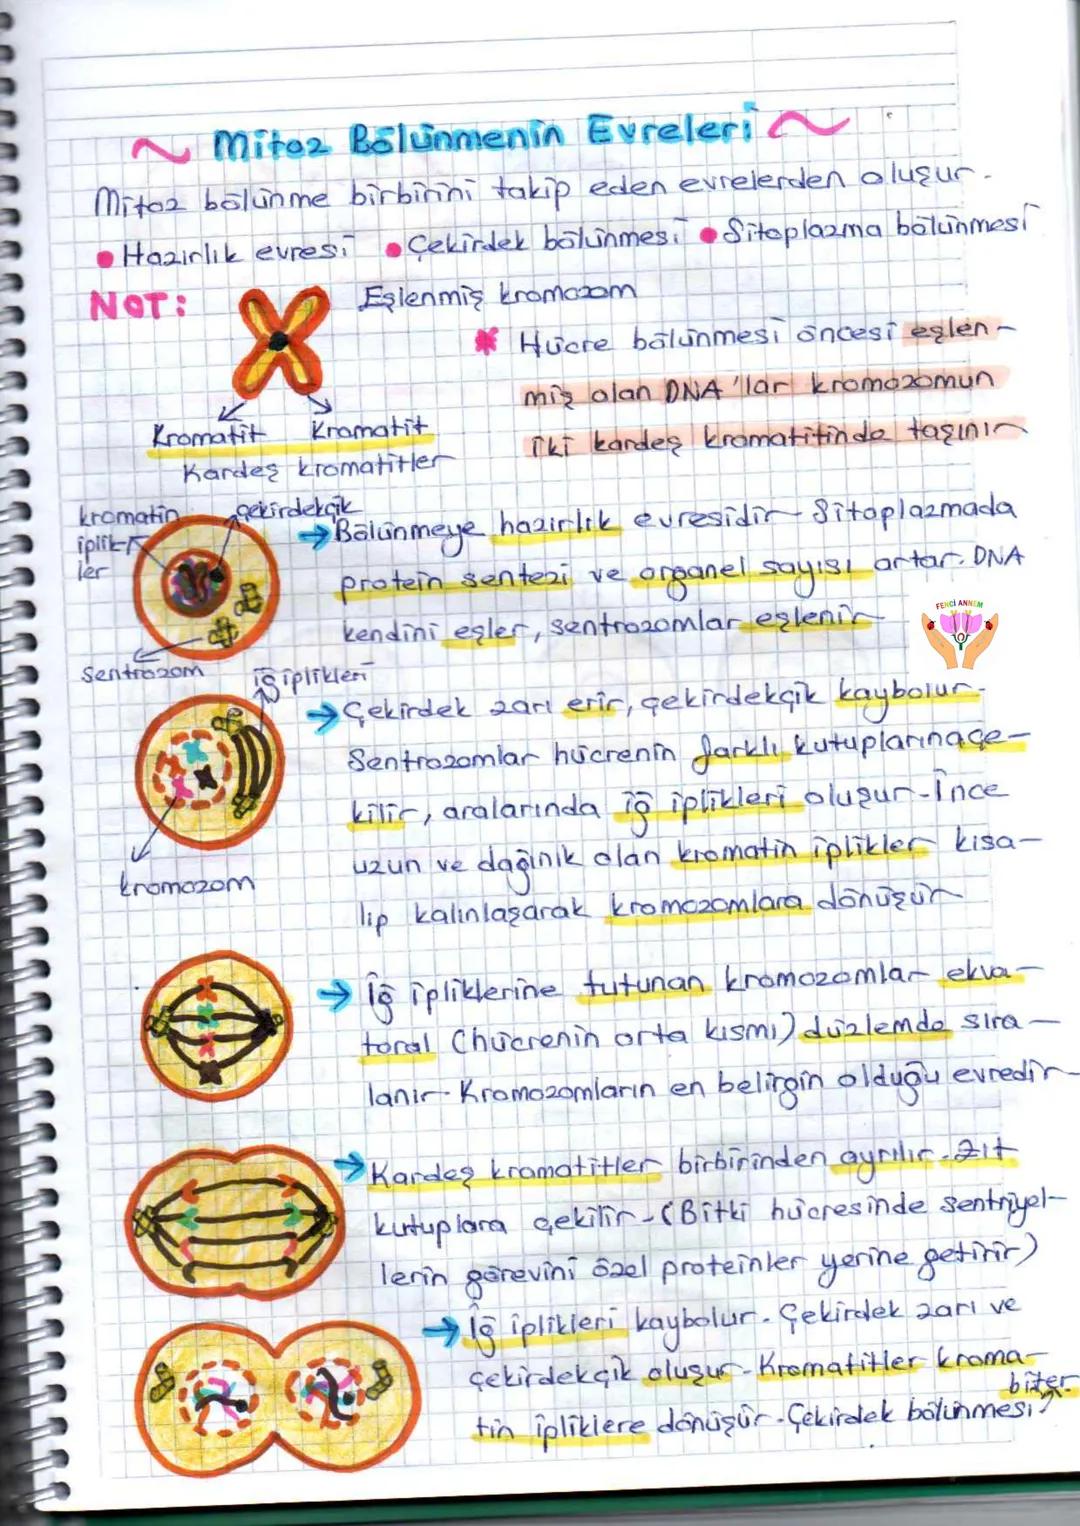 ~ Mitoz Bölünmenin Evreleri ~
Mitoz bölünme birbirini takip eden evrelerden oluşur.
• Hazırlık evresi • Çekirdek bölünmesi • Sitoplazma bölünmesi
NOT:
Eşlenmiş kromozom
* Hücre bölünmesi öncesi eşlen-
miş olan DNA'lar kromozomun
iki kardeş kromatitinde taşınır
Kromatit Kromatit
Kardeş kromatitler
kromatin
iplik-
ler
çekirdekçik
Sentrozom
→ Bölünmeye hazırlık evresidir. Sitoplazmada
protein sentezi ve organel sayısı artar. DNA
kendini eşler, sentrozomlar eşlenir
FENCİ ANNEM
iğ iplikleri
kromozom
→ Çekirdek zarı erir, çekirdekçik kaybolur.
Sentrozomlar hücrenin farklı kutuplarına çe-
kilir, aralarında iğ iplikleri oluşur. İnce
uzun ve dağınık olan kromatin iplikler kısa-
lıp kalınlaşarak kromozomlara dönüşür
→ İğ ipliklerine tutunan kromozomlar ekva-
toral (hücrenin orta kısmı) düzlemde sıra-
lanır. Kromozomların en belirgin olduğu evredir
→ Kardeş kromatitler birbirinden ayrılır. Zıt
kutuplara çekilir. (Bitki hücresinde sentriyol-
lerin görevini özel proteinler yerine getirir)
→ İğ iplikleri kaybolur. Çekirdek zarı ve
çekirdekçik oluşur. Kromatitler kroma-
tin ipliklere dönüşür. Çekirdek bölünmesi
biter.